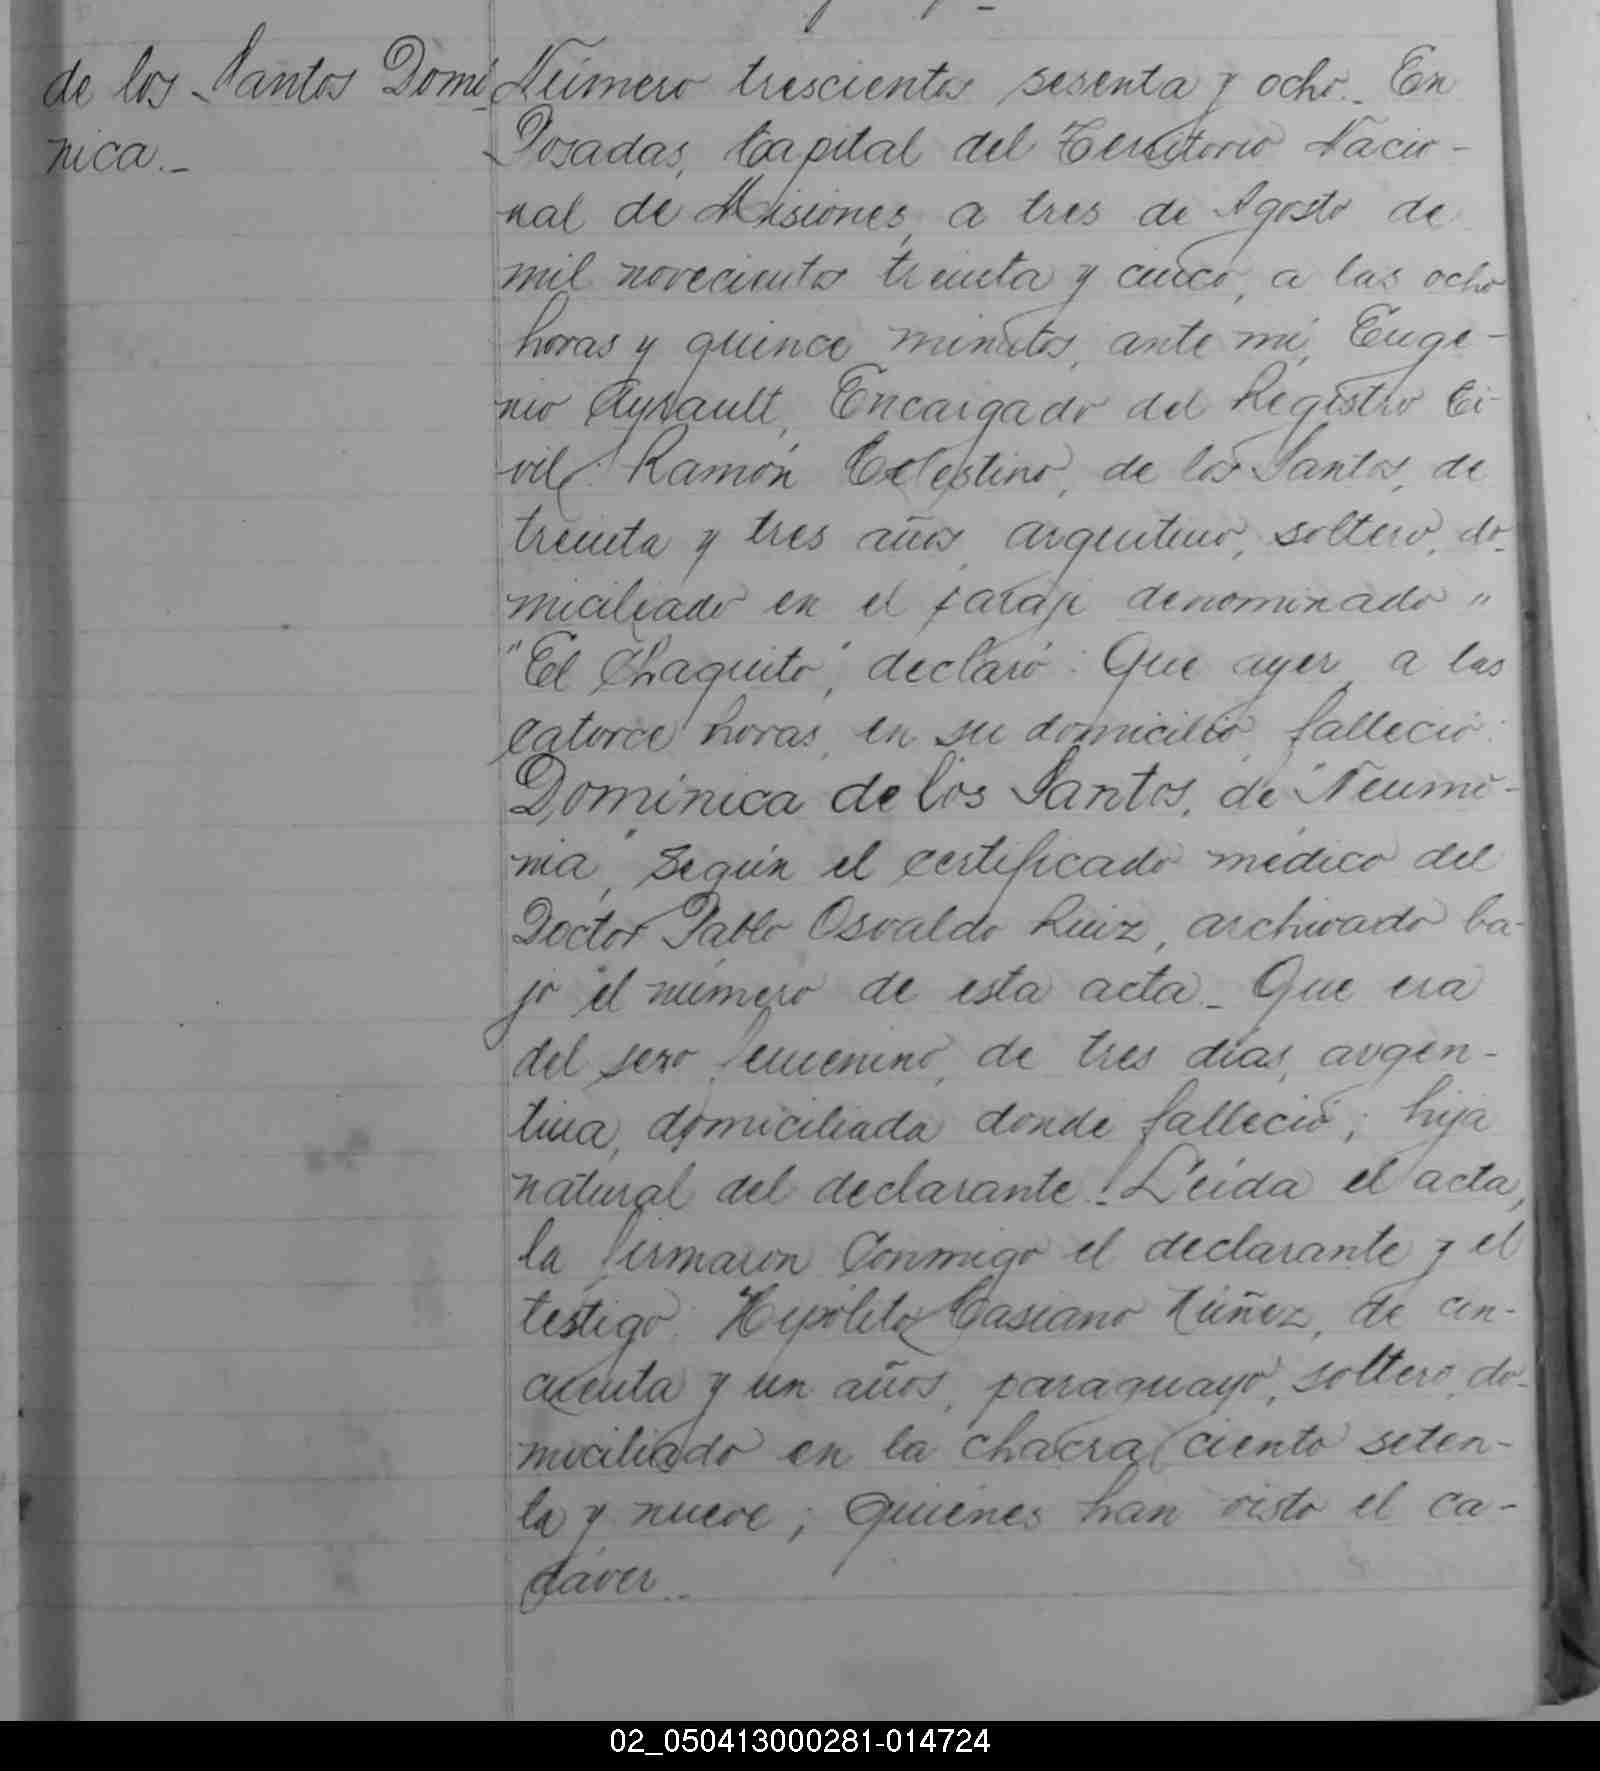 de los Santos Domi-
nica.-
Número trescientos sesenta y ocho.- En
Posadas, Capital del Territorio Nacio-
nal de Misiones, a tres de Agosto de
mil novecientos treinta y cinco, a las ocho
horas y quince minutos, ante mí, Euge-
nio Ayrault, Encargado del Registro Ci-
vil: Ramón Celestino, de los Santos, de
treinta y tres años, argentino, soltero, do-
miciliado en el paraje denominado "
"El Chaquito", declaró: Que ayer, a las
catorce horas, en su domicilio, falleció:
Dominica de los Santos, de "Neumo-
nia", según el certificado médico del
Doctor Pablo Osvaldo Ruiz, archivado ba-
jo el número de esta acta.- Que era
del sexo femenino, de tres días, argen-
tina, domiciliada donde falleció; hija
natural del declarante.- Leída el acta,
la firmaron conmigo el declarante y el
testigo: Hipólito Casiano Núñez, de cin-
cuenta y un años, paraguayo, soltero, do-
miciliado en la chacra ciento seten-
ta y nueve; quienes han visto el ca-
dáver.-
02_050413000281-014724